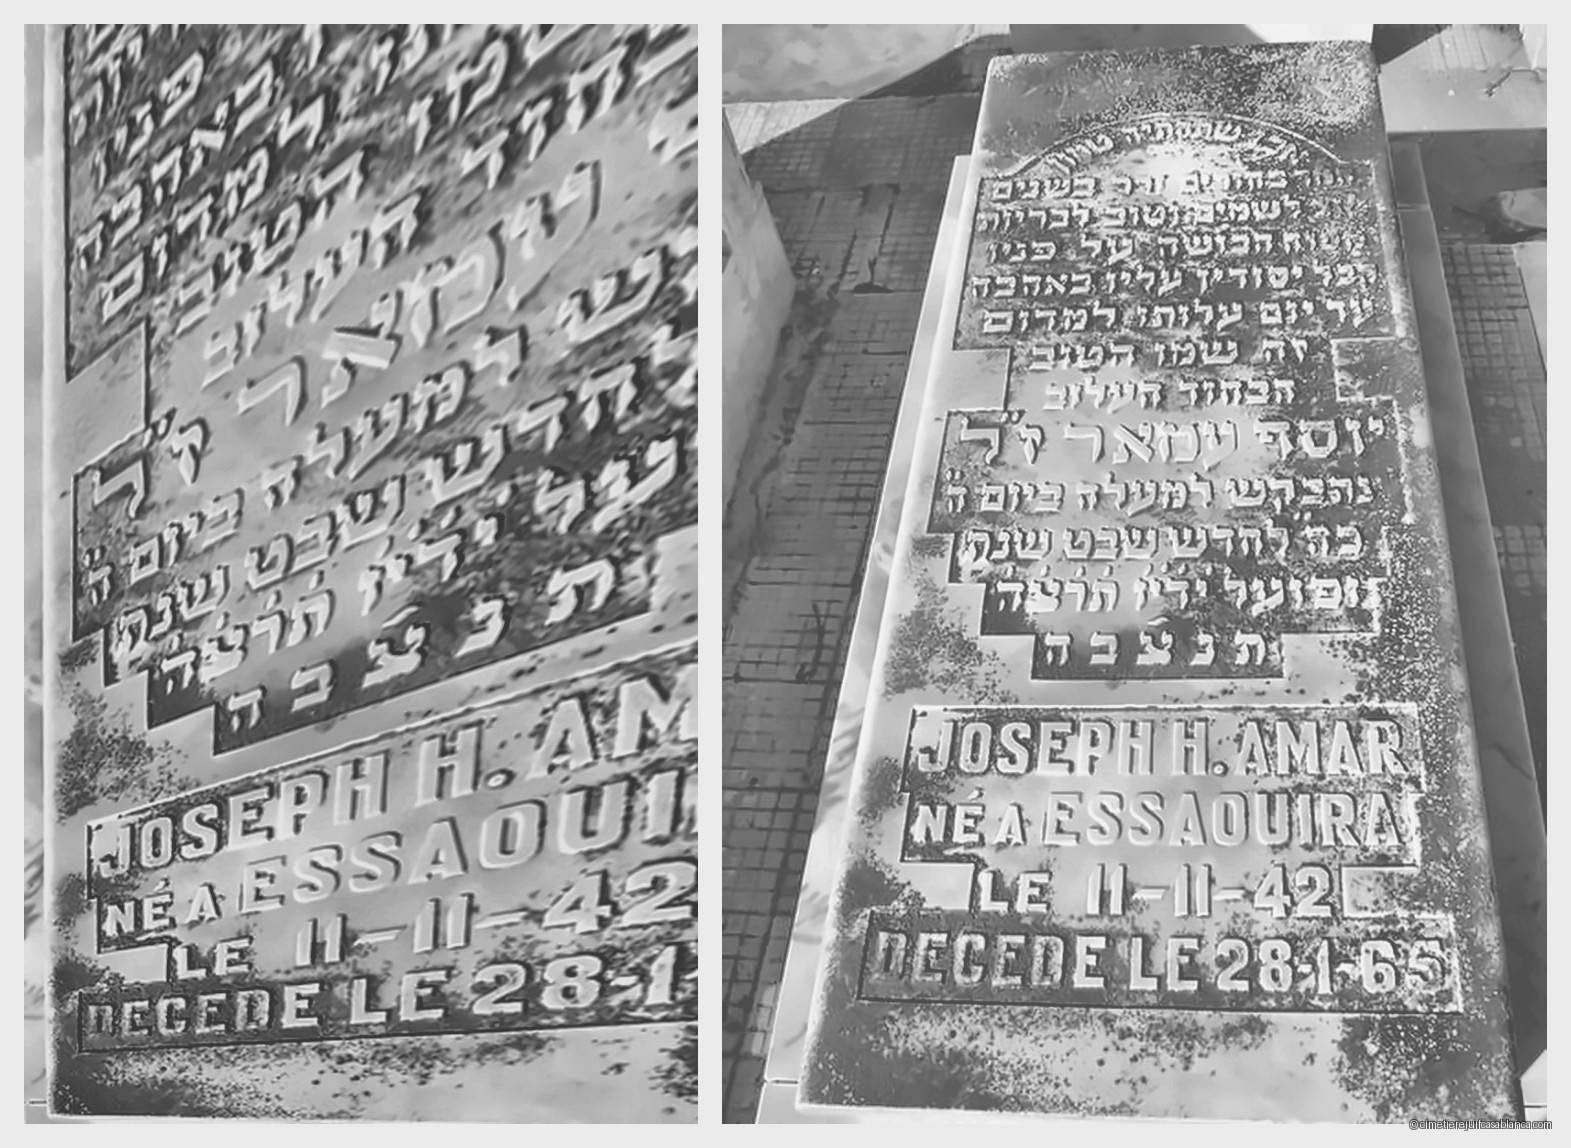 בחורים זרב בשנים
לשמים וטוב לבריות
הבושה על פניו
וכל יסודיו עליו באהבה
עד יום עלותו למרום
זה שמו הטוב
הבחור העלוב
יוסף עמאר ז״ל
נתבקש למעלה ביום ה׳
כה לחדש שבט שנת
על ידיו
ת נ צ ב ה
JOSEPH H. AMAR
NÉ A ESSAOUIRA
LE 11-11-42
DECEDE LE 28-1-65
©cimetierejuifcasablanca.com